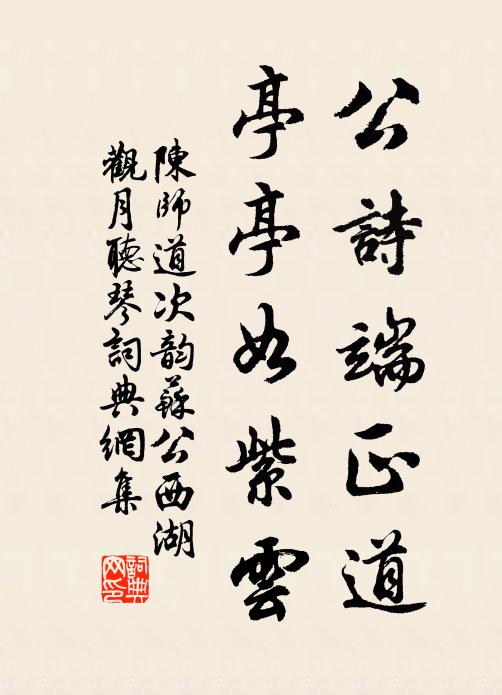 公詩端正道
亭亭如紫雲
陳師道次韵蘇公西湖
觀月聽琴詞典網集
詞典
网印